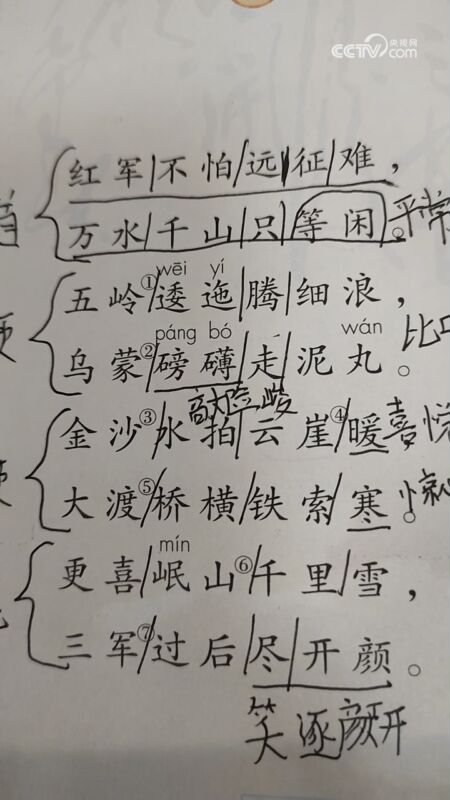 CCTV 央视网
com
红军不怕远征难，
万水千山只等闲。平常
wēi yí
五岭①逶迤腾细浪，
páng bó wán
乌蒙②磅礴走泥丸。
高大险峻
金沙③水拍云崖④暖 喜悦
大渡⑤桥横铁索寒。
mín
更喜岷山⑥千里雪，
三军⑦过后尽开颜。
笑逐颜开